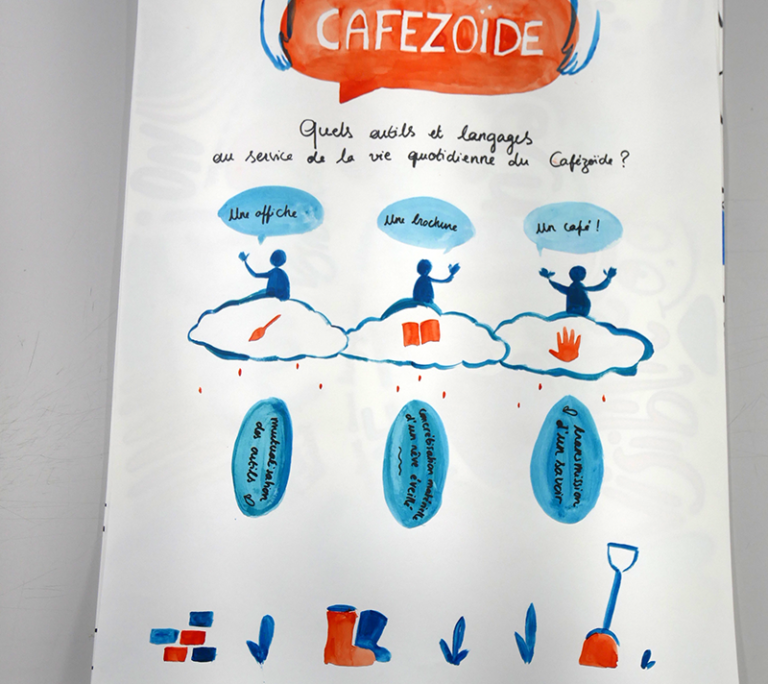 CAFEZOÏDE
Quels outils et langages
au service de la vie quotidienne du Cafézoïde ?
Une affiche
Une brochure
Un café !
mutualisation
des outils
concrétisation matérielle
d'un rêve éveillé
transmission
d'un savoir